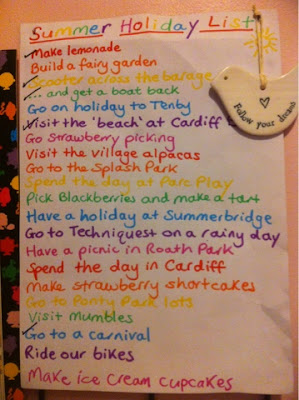 Summer Holiday List
Make lemonade
Build a fairy garden
Scooter across the barage
... and get a boat back
Go on holiday to Tenby
Visit the 'beach' at Cardiff
Go Strawberry picking
Visit the village alpacas
Go to the Splash Park
Spend the day at Parc Play
Pick Blackberries and make a tart
Have a holiday at Summerbridge
Go to Techniquest on a rainy day
Have a picnic in Roath Park
Spend the day in Cardiff
Make strawberry shortcakes
Go to Ponty Park lots
Visit Mumbles
Go to a carnival
Ride our bikes
Make ice cream cupcakes
Follow your dreams